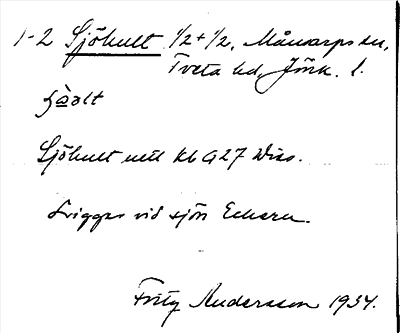 1-2 Sjöhult 1/2+1/2, Månsarps sn,
Tveta hd, Jönk. l.
Sjöhult untl Kb G27 Diss.
Ligger vid sjön Eckern.
Fritz Andersson 1934.